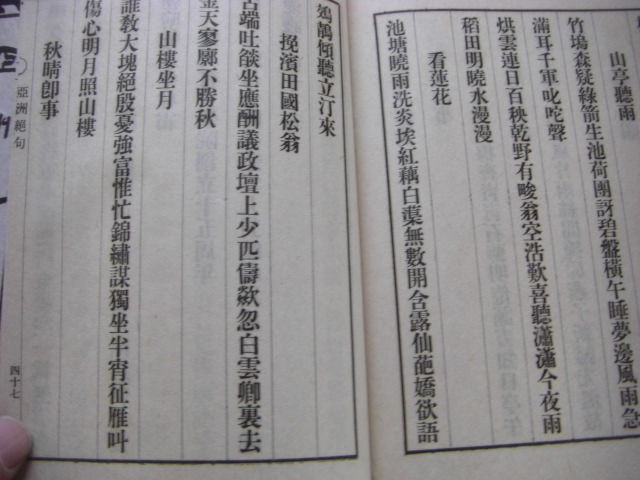 山亭聽雨
竹塢森疑綠箭生池荷團訝碧盤橫午睡夢邊風雨急
滿耳千軍叱咤聲
烘雲連日百秧乾野有畯翁空浩歎喜聽瀟瀟今夜雨
稻田明曉水漫漫
看蓮花
池塘曉雨洗炎埃紅藕白蕖無數開含露仙葩嬌欲語
鴛鶄傾聽立汀來
挽濱田國松翁
舌端吐燄坐應酬議政壇上少匹儔欻忽白雲鄉裏去
金天寥廓不勝秋
山樓坐月
誰敎大塊絕殷憂強富惟忙錦繡謀獨坐半宵征雁叫
傷心明月照山樓
秋晴卽事
亞洲絕句
四十七